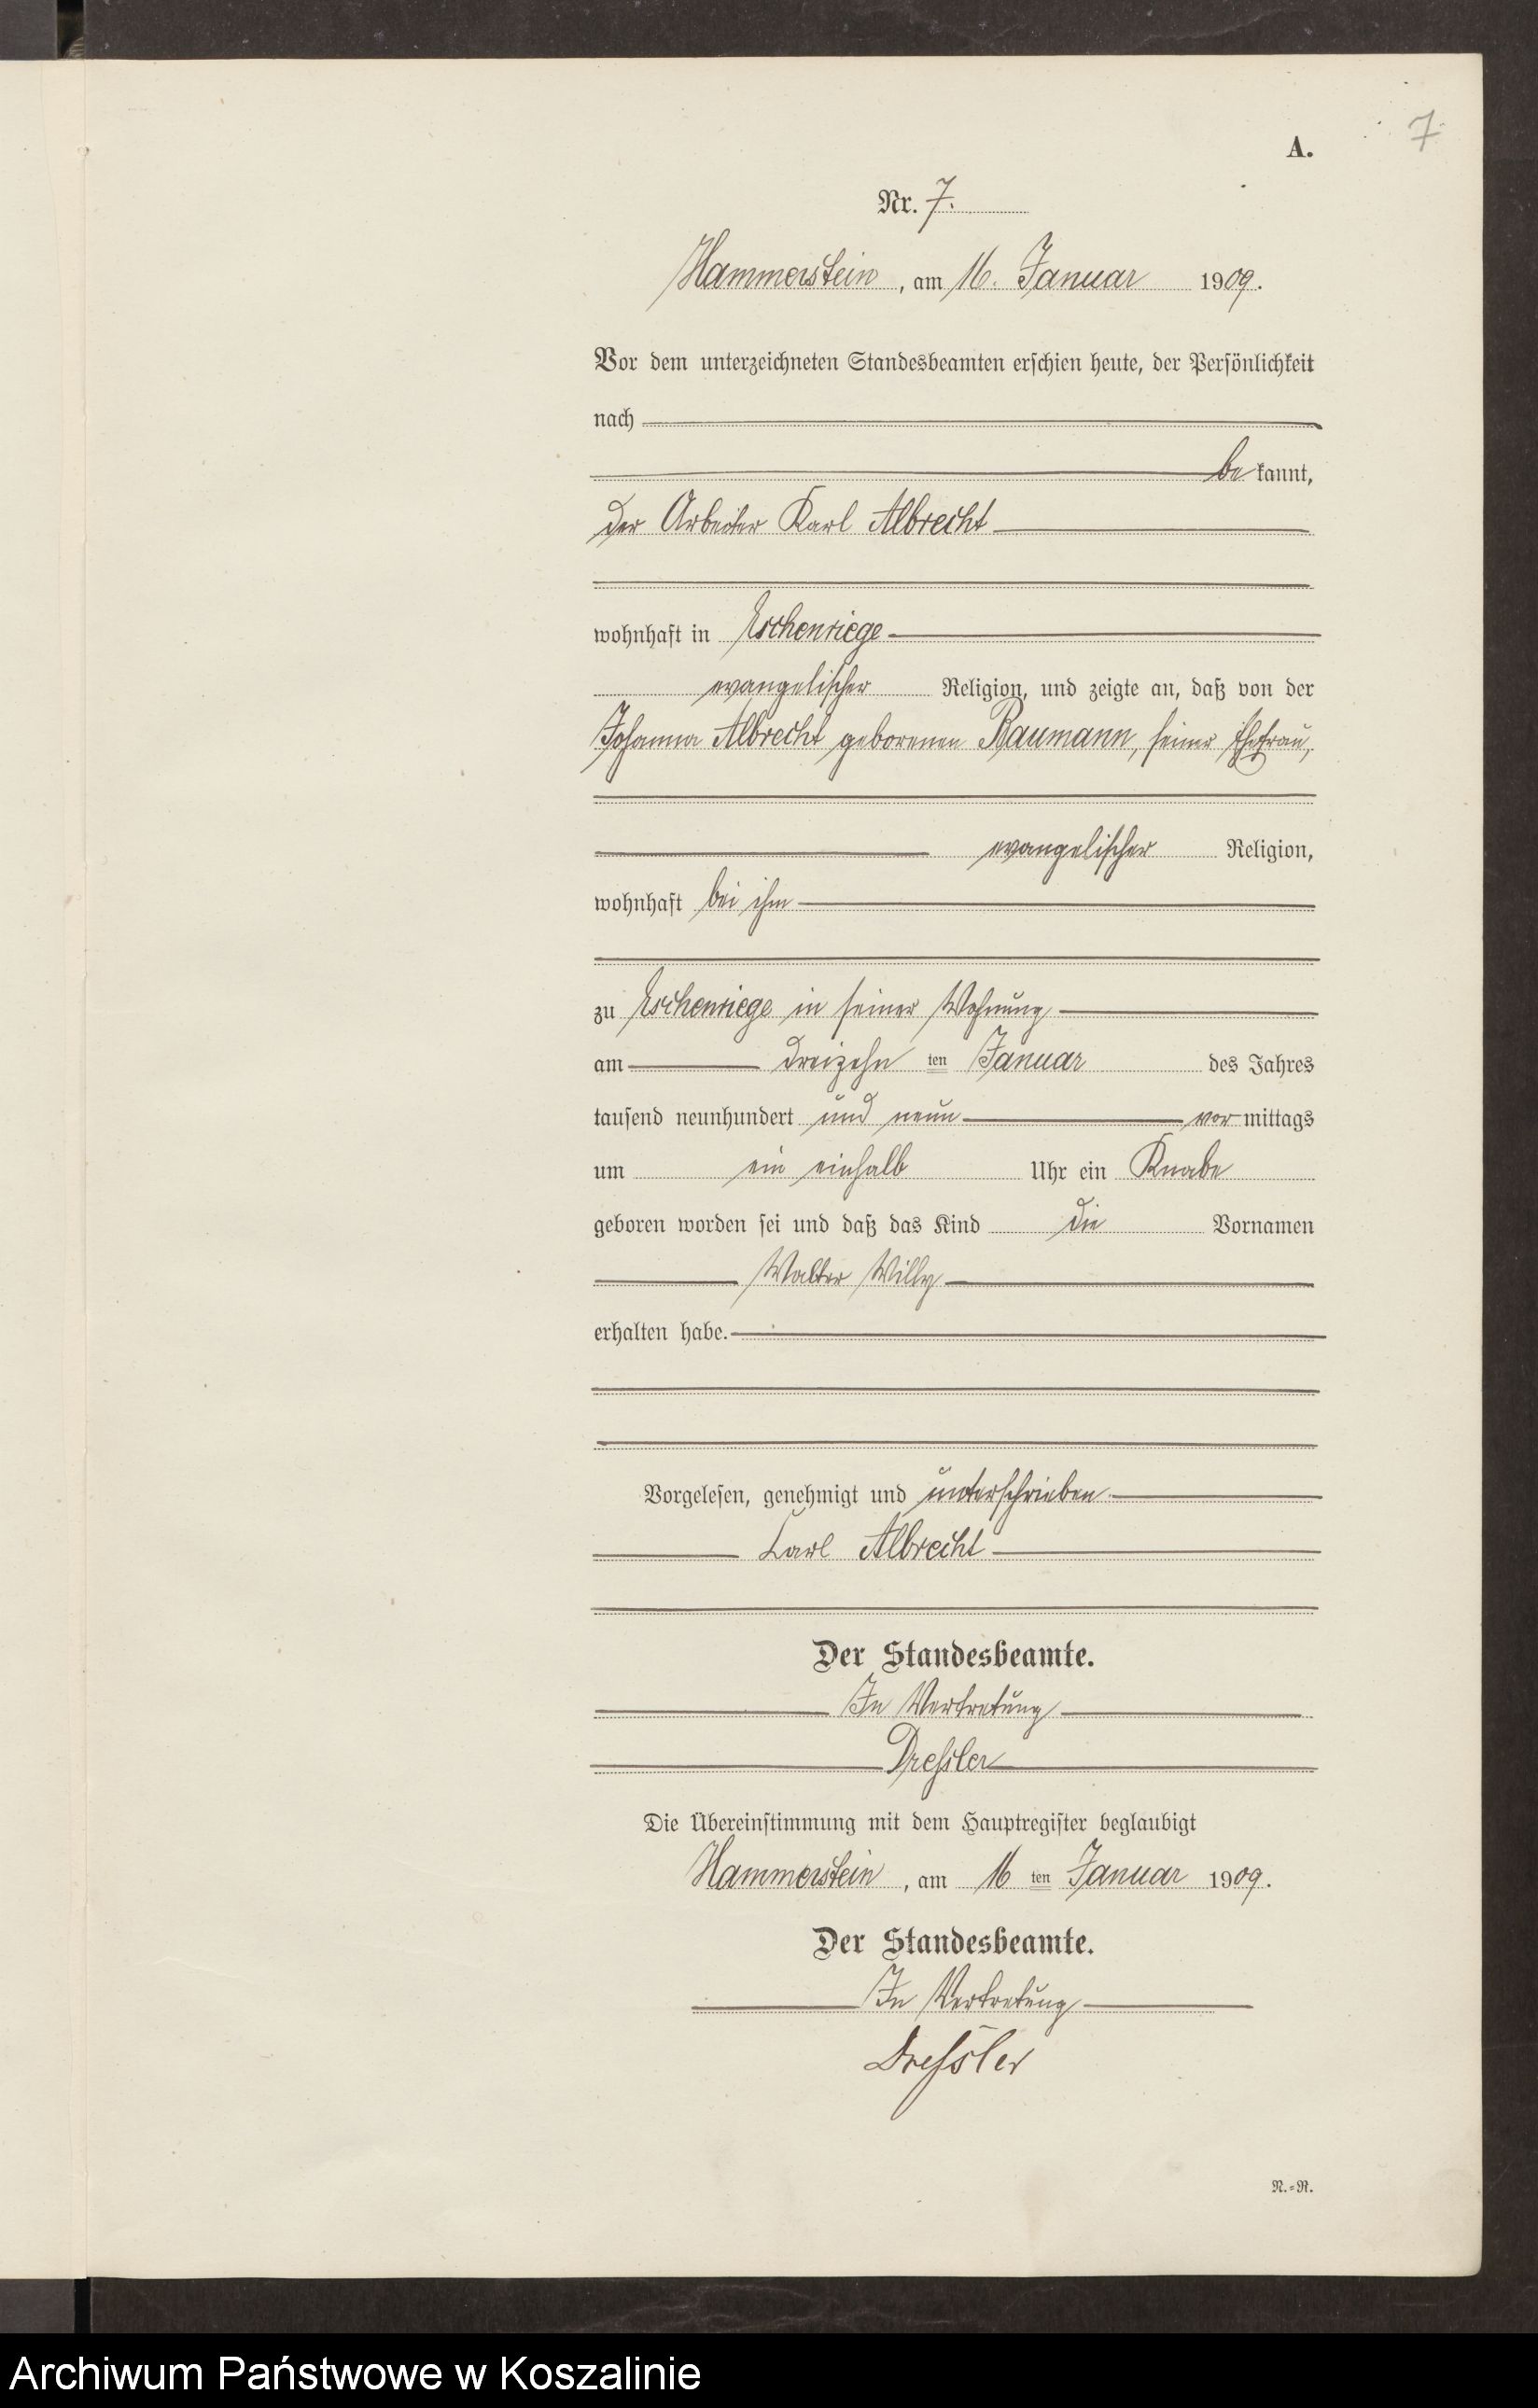 7
A.
Nr. 7.
Hammerstein, am 16. Januar 1909.
Vor dem unterzeichneten Standesbeamten erschien heute, der Persönlichkeit
nach
be kannt,
der Arbeiter Karl Albrecht
wohnhaft in Eschenriege
evangelischer Religion, und zeigte an, daß von der
Johanna Albrecht geborenen Baumann, seiner Ehefrau,
evangelischer Religion,
wohnhaft bei ihm
zu Eschenriege in seiner Wohnung
am dreizehn ten Januar des Jahres
tausend neunhundert und neun vor mittags
um ein einhalb Uhr ein Knabe
geboren worden sei und daß das Kind die Vornamen
Walter Willy
erhalten habe.
Vorgelesen, genehmigt und unterschrieben
Carl Albrecht
Der Standesbeamte.
In Vertretung
Dressler
Die Übereinstimmung mit dem Hauptregister beglaubigt
Hammerstein, am 16 ten Januar 1909.
Der Standesbeamte.
In Vertretung
Dressler
N.-R.
Archiwum Państwowe w Koszalinie